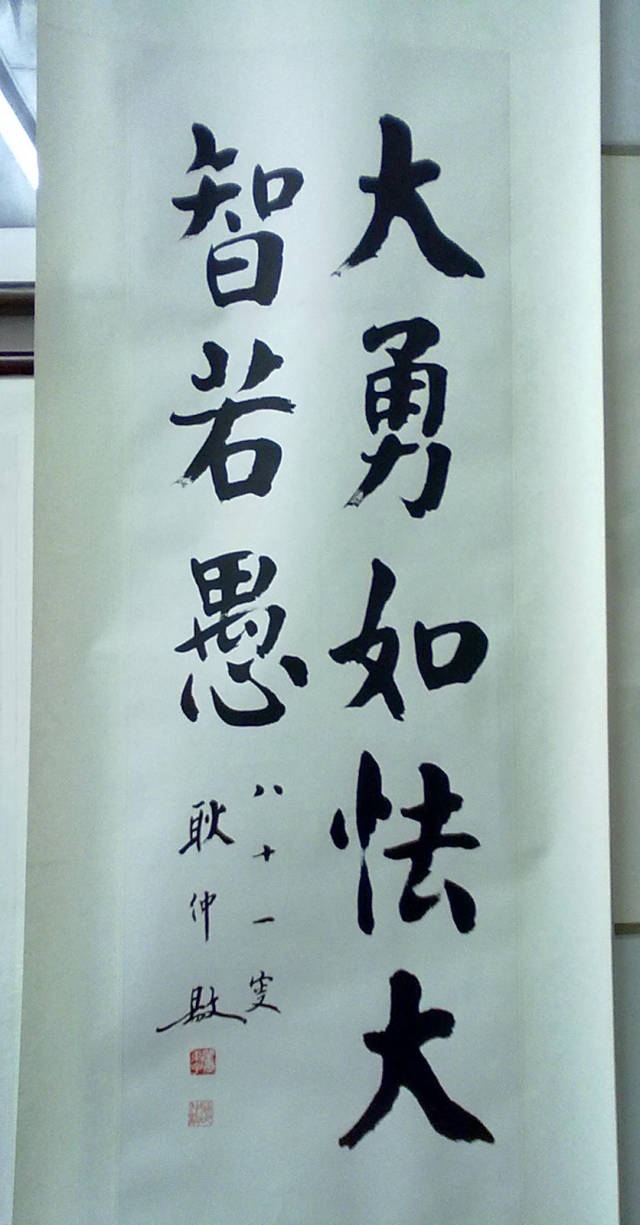 大勇如怯大
智若愚
八十一叟
耿仲敭